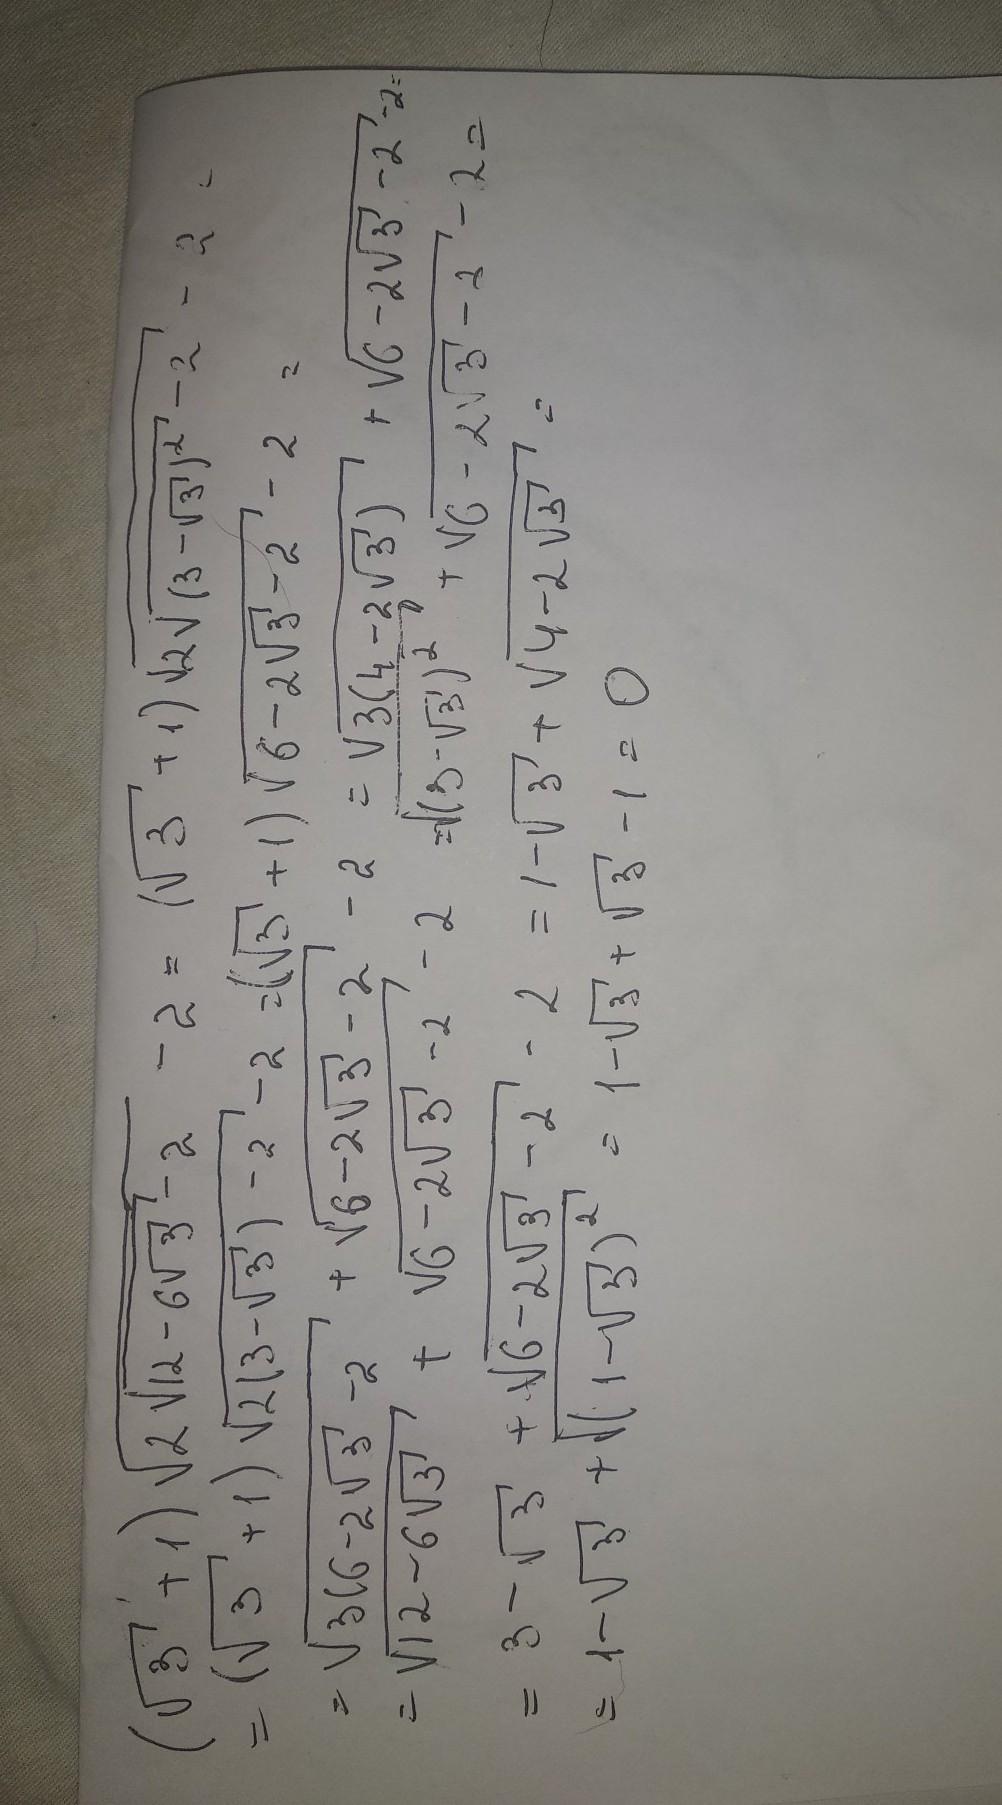 (√3+1)√(2√(12-6√3)-2) -2 = (√3+1)√(2√((3-√3)²)-2) -2 =
= (√3+1)√(2(3-√3)-2) -2 = (√3+1)√(6-2√3-2) -2 =
= √(3(6-2√3-2)) + √(6-2√3-2) -2 = √(3(4-2√3)) + √(6-2√3-2) -2=
= √(12-6√3) + √(6-2√3-2) -2 = √((3-√3)²) + √(6-2√3-2) -2 =
= 3-√3 + √(6-2√3-2) -2 = 1-√3 + √(4-2√3) =
= 1-√3 + √((1-√3)²) = 1-√3+√3-1=0